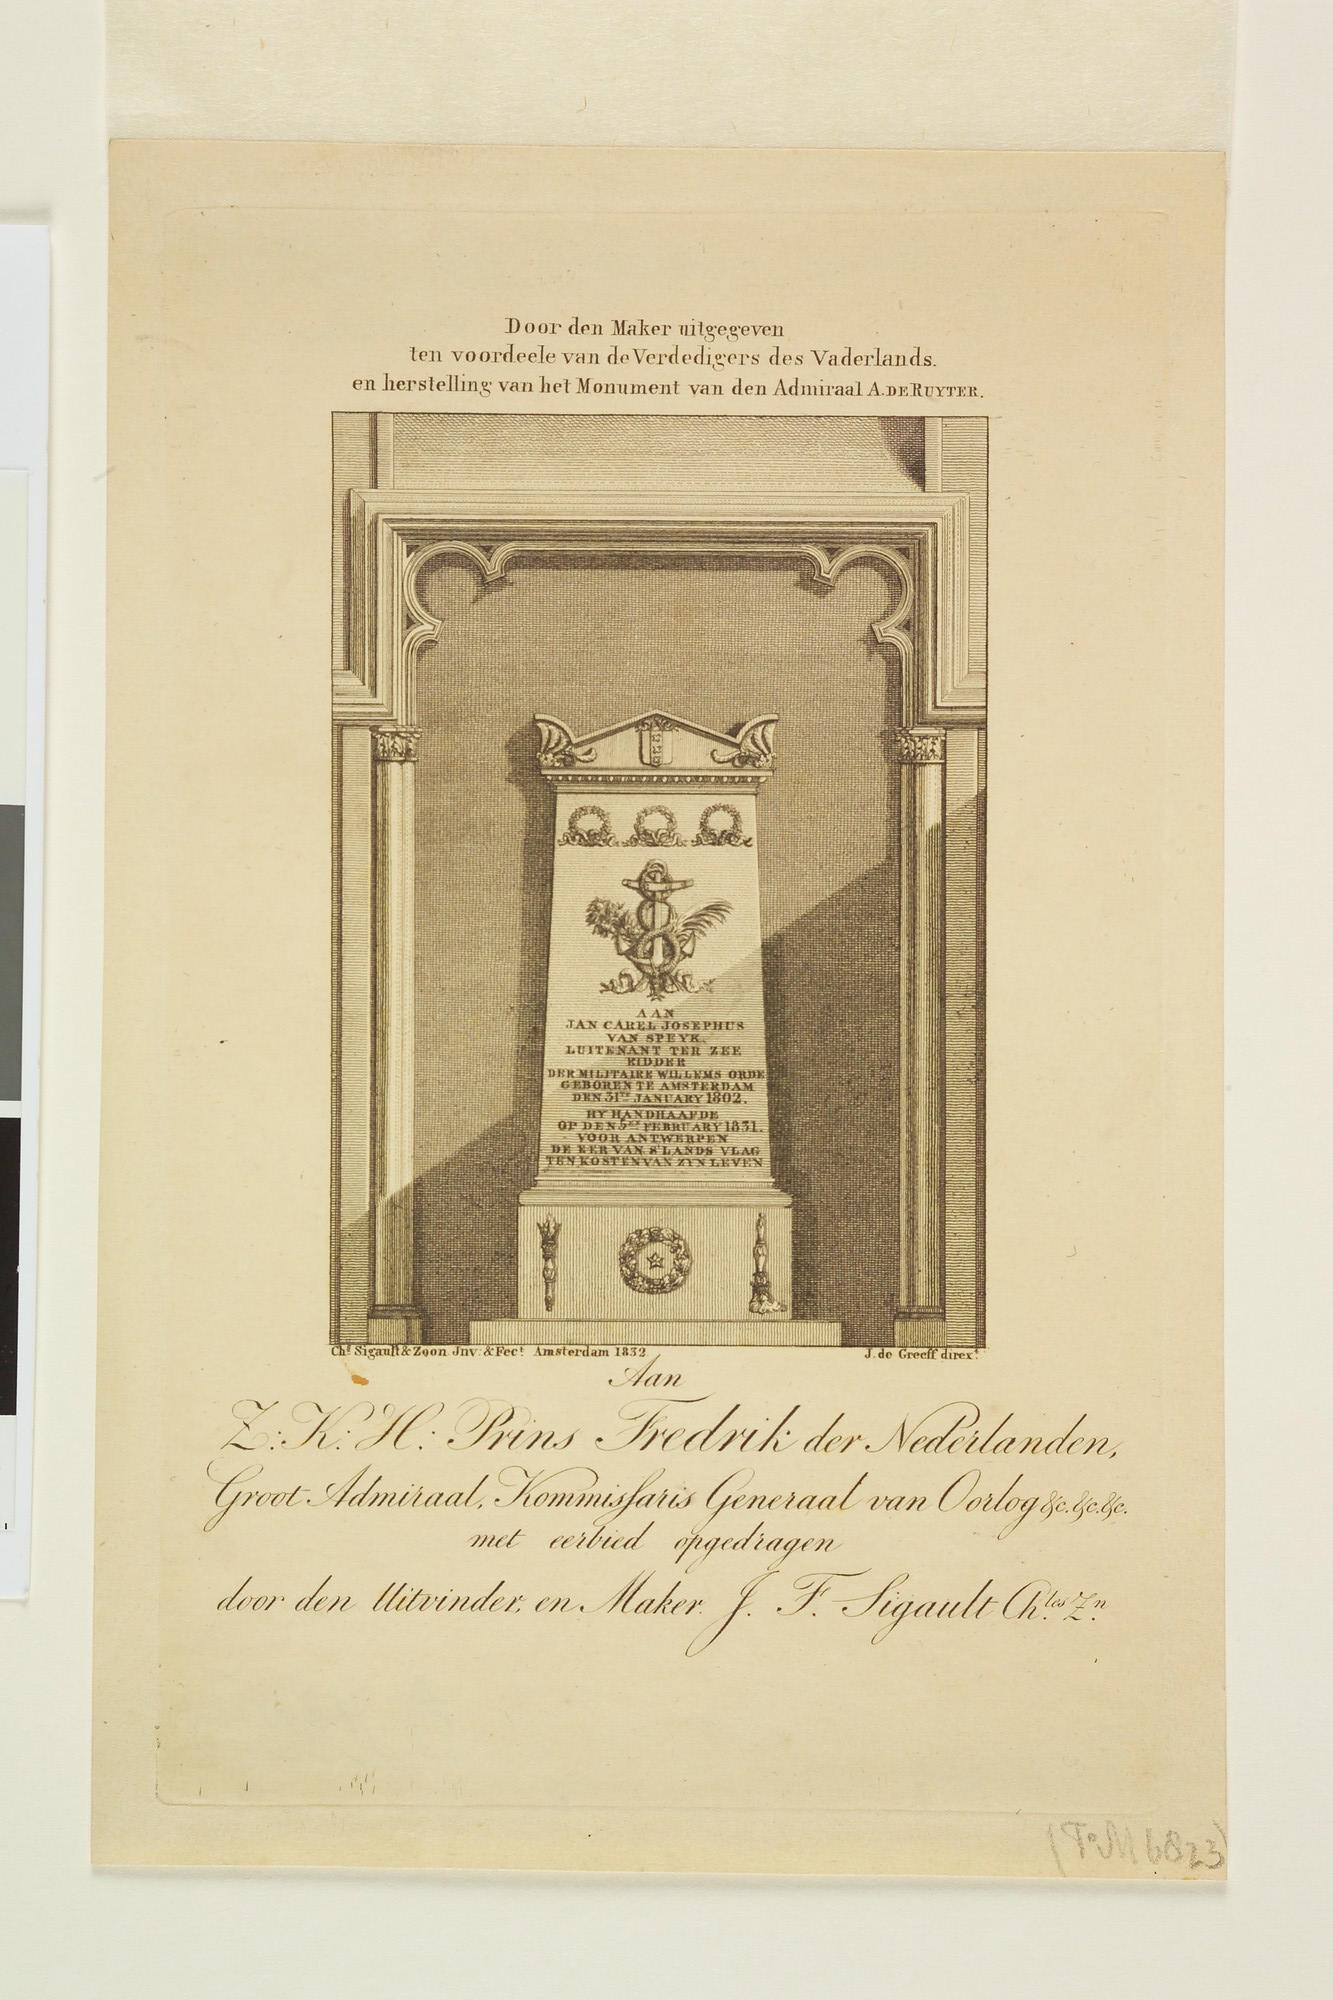 Door den Maker uitgegeven
ten voordeele van de Verdedigers des Vaderlands.
en herstelling van het Monument van den Admiraal A. DE RUYTER.
AAN
JAN CAREL JOSEPHUS
VAN SPEYK.
LUITENANT TER ZEE
RIDDER
DER MILITAIRE WILLEMS ORDE
GEBOREN TE AMSTERDAM
DEN 31TEN JANUARY 1802.
HY HANDHAAFDE
OP DEN 5DEN FEBRUARY 1831.
VOOR ANTWERPEN
DE EER VAN S'LANDS VLAG
TEN KOSTEN VAN ZYN LEVEN
Chs Sigault & Zoon Jnv: & Fect Amsterdam 1832
J. de Greeff dirext.
Aan
Z: K: H: Prins Fredrik der Nederlanden,
Groot Admiraal, Kommissaris Generaal van Oorlog &c. &c. &c.
met eerbied opgedragen
door den Uitvinder, en Maker. J. F. Sigault Chles Zn.
(F.M 6823)